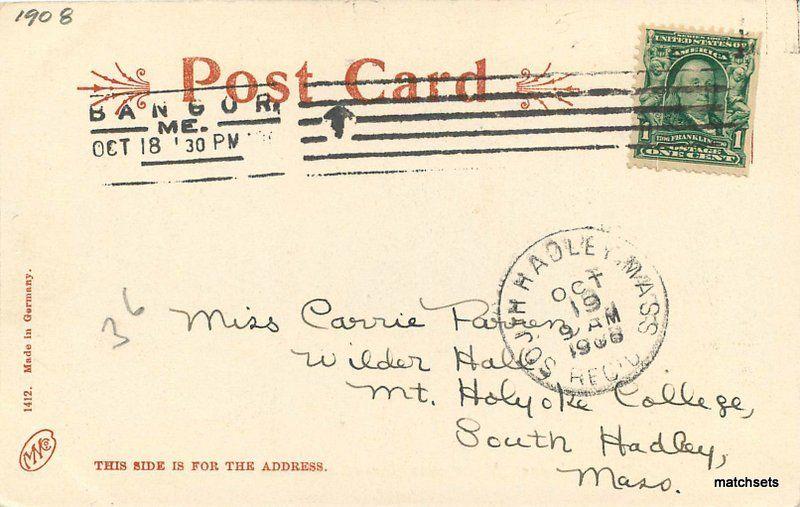 1908
Post Card
BANGOR
ME.
OCT 18 130 PM
SERIES 1902
UNITED STATES OF
AMERICA
FRANKLIN
1 POSTAGE 1
ONE CENT
SOUTH HADLEY, MASS
OCT
19
9 AM
1908
REC'D
36
Miss Carrie Farren
Wilder Hall
Mt. Holyoke College,
South Hadley,
Mass.
1412. Made in Germany.
THIS SIDE IS FOR THE ADDRESS.
matchsets